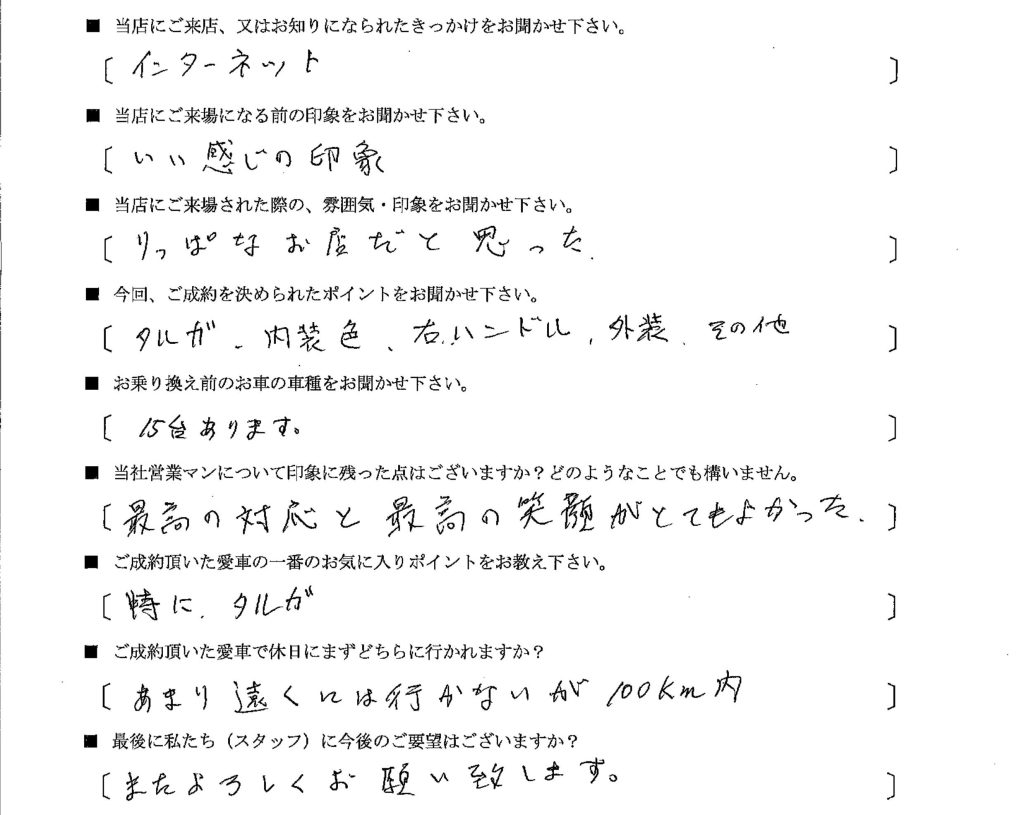 ■ 当店にご来店、又はお知りになられたきっかけをお聞かせ下さい。
[ インターネット ]
■ 当店にご来場になる前の印象をお聞かせ下さい。
[ いい感じの印象 ]
■ 当店にご来場された際の、雰囲気・印象をお聞かせ下さい。
[ りっぱなお店だと思った. ]
■ 今回、ご成約を決められたポイントをお聞かせ下さい。
[ タルガ、内装色、右ハンドル、外装、その他 ]
■ お乗り換え前のお車の車種をお聞かせ下さい。
[ 15台あります。 ]
■ 当社営業マンについて印象に残った点はございますか？どのようなことでも構いません。
[ 最高の対応と最高の笑顔がとてもよかった. ]
■ ご成約頂いた愛車の一番のお気に入りポイントをお教え下さい。
[ 特に、タルガ ]
■ ご成約頂いた愛車で休日にまずどちらに行かれますか？
[ あまり遠くには行かないが 100km内 ]
■ 最後に私たち（スタッフ）に今後のご要望はございますか？
[ またよろしくお願い致します。 ]